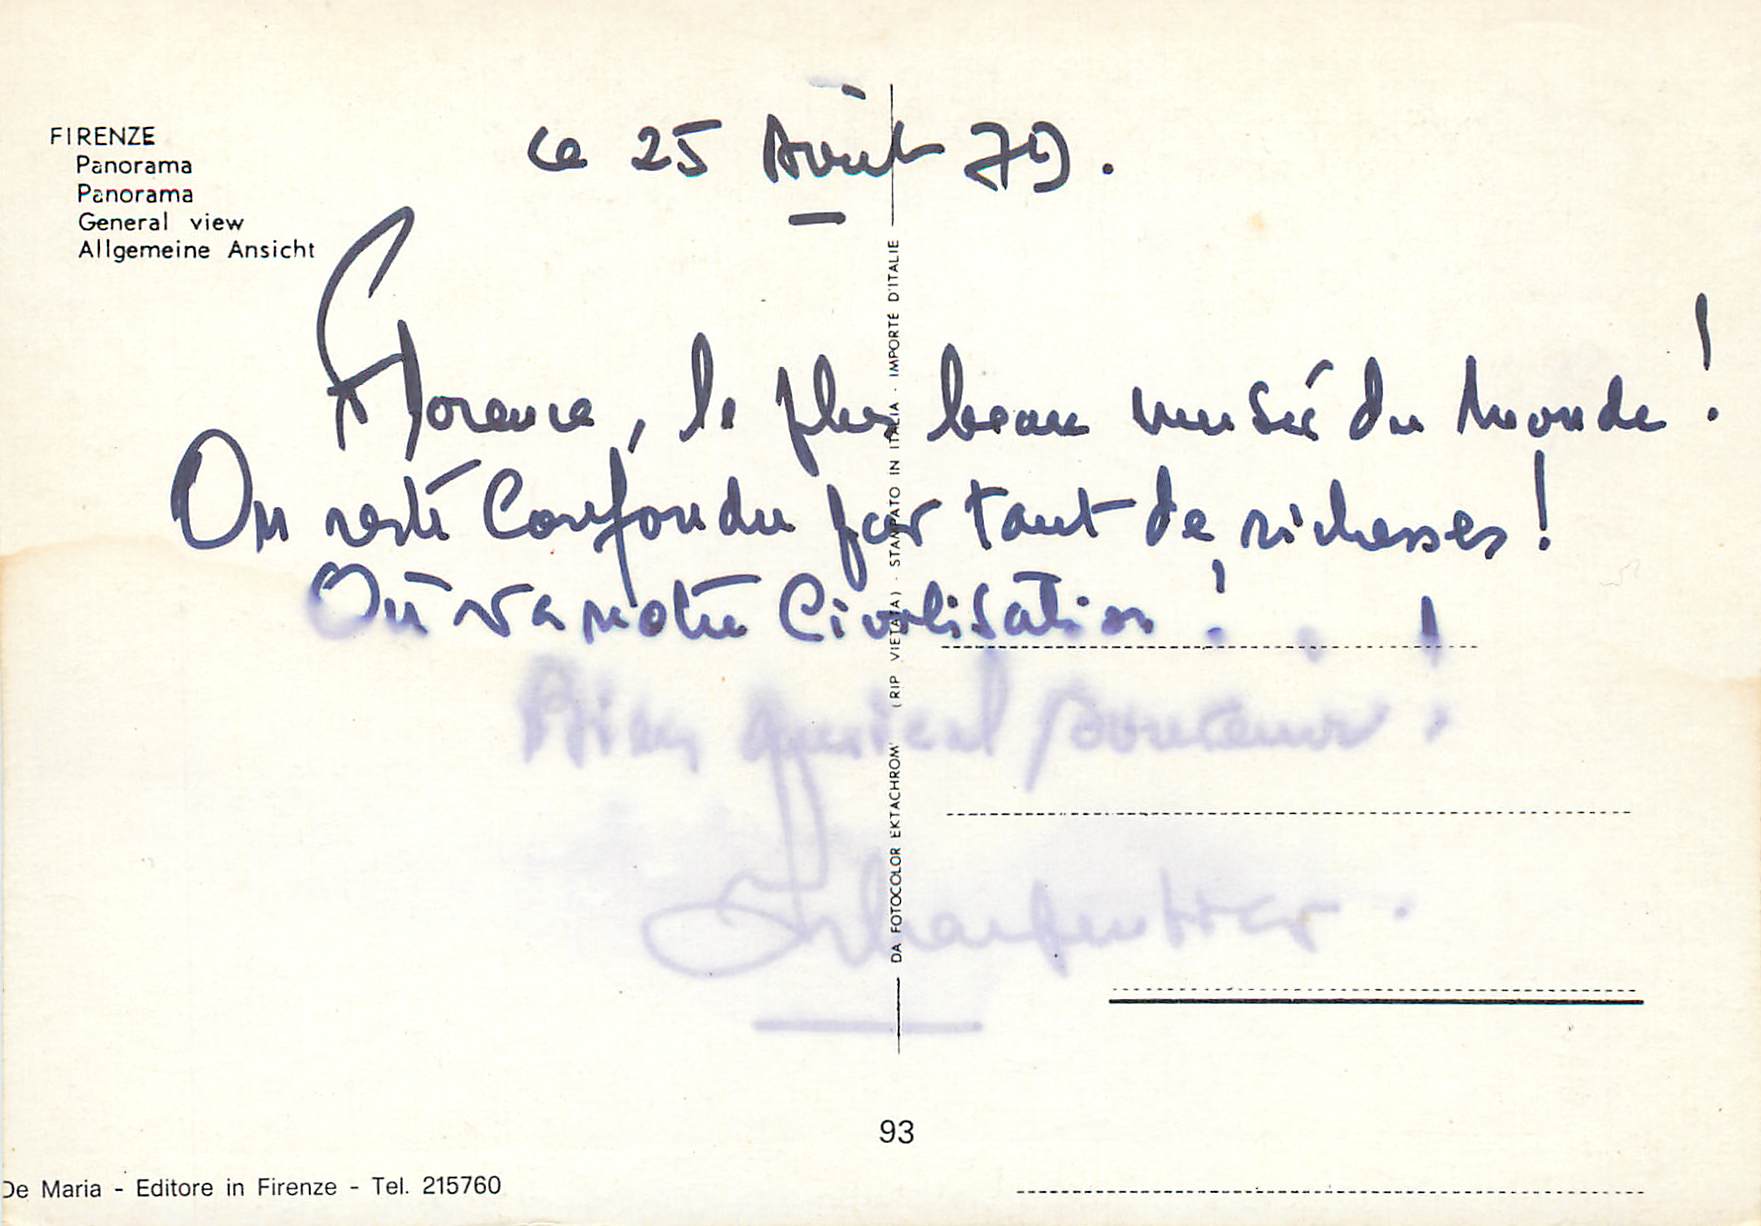 FIRENZE
Panorama
Panorama
General view
Allgemeine Ansicht
Le 25 Août 79.
Florence, le plus beau musée du Monde !
On reste confondu par tant de richesses !
Où va notre Civilisation !
Bien amical souvenir !
Charpentier.
DA FOTOCOLOR EKTACHROM (RIP VIETATA) - STAMPATO IN ITALIA - IMPORTÉ D'ITALIE
93
De Maria - Editore in Firenze - Tel. 215760